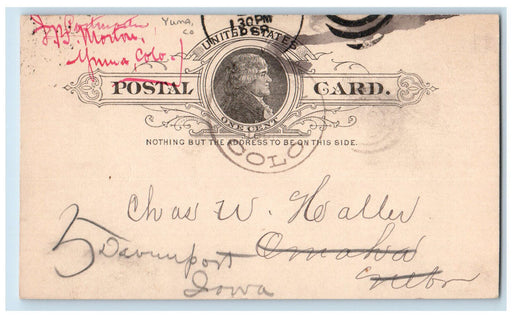 Postmaster
Morton
Yuma, Colo.
Yuma,
Co
130PM
UNITED STATES
POSTAL CARD.
ONE CENT
NOTHING BUT THE ADDRESS TO BE ON THIS SIDE.
COLO
Chas W. Haller
5 Davenport Omaha
Iowa Nebr